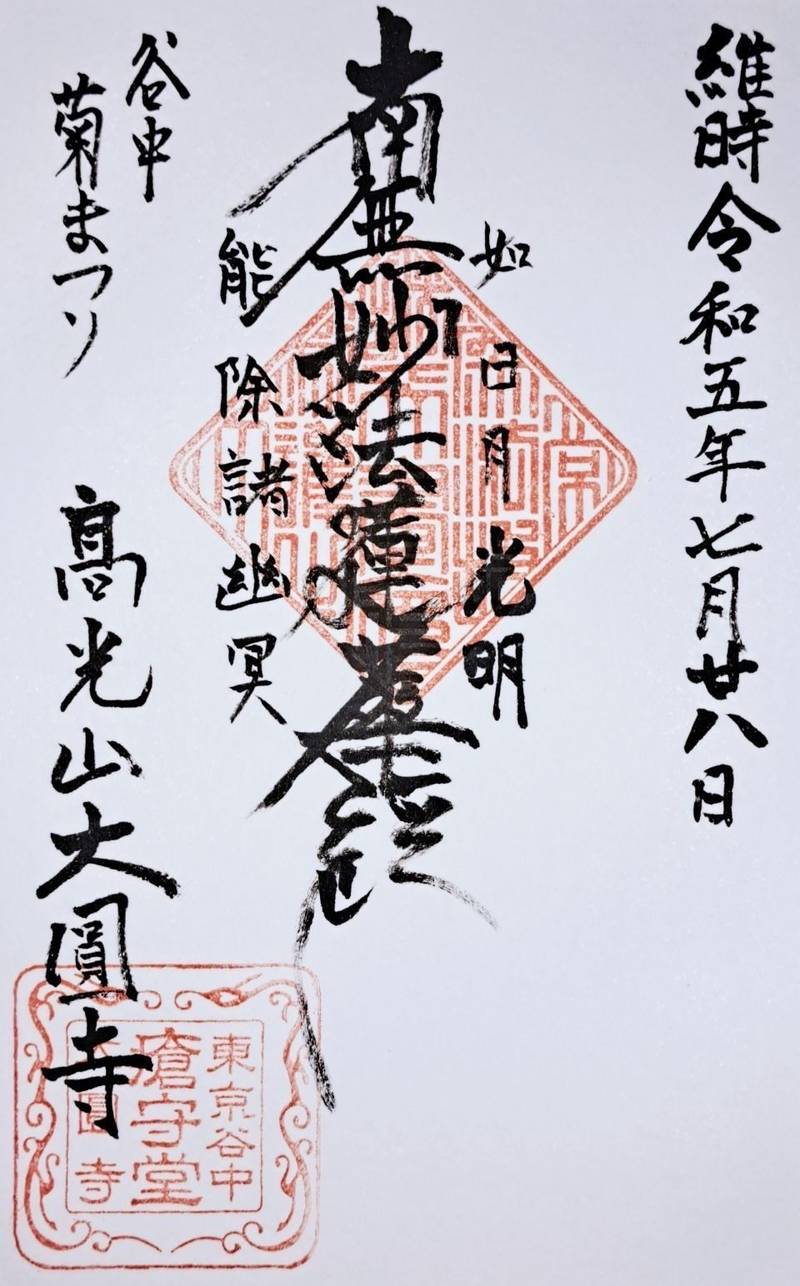 維時令和五年七月廿八日
如日月光明
南無妙法蓮華経
能除諸幽冥
谷中
菊まつり
高光山大圓寺
東京谷中
瘡守堂
大圓寺